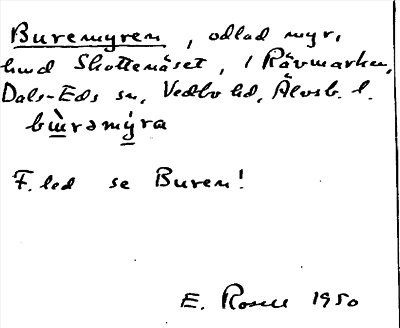 Buremyren, odlad myr,
hmd Skottenäset, i Rävmarken,
Dals-Eds sn, Vedbo hd, Älvsb. l.
bùrəmýra
F. led se Buren!
E. Rosell 1950